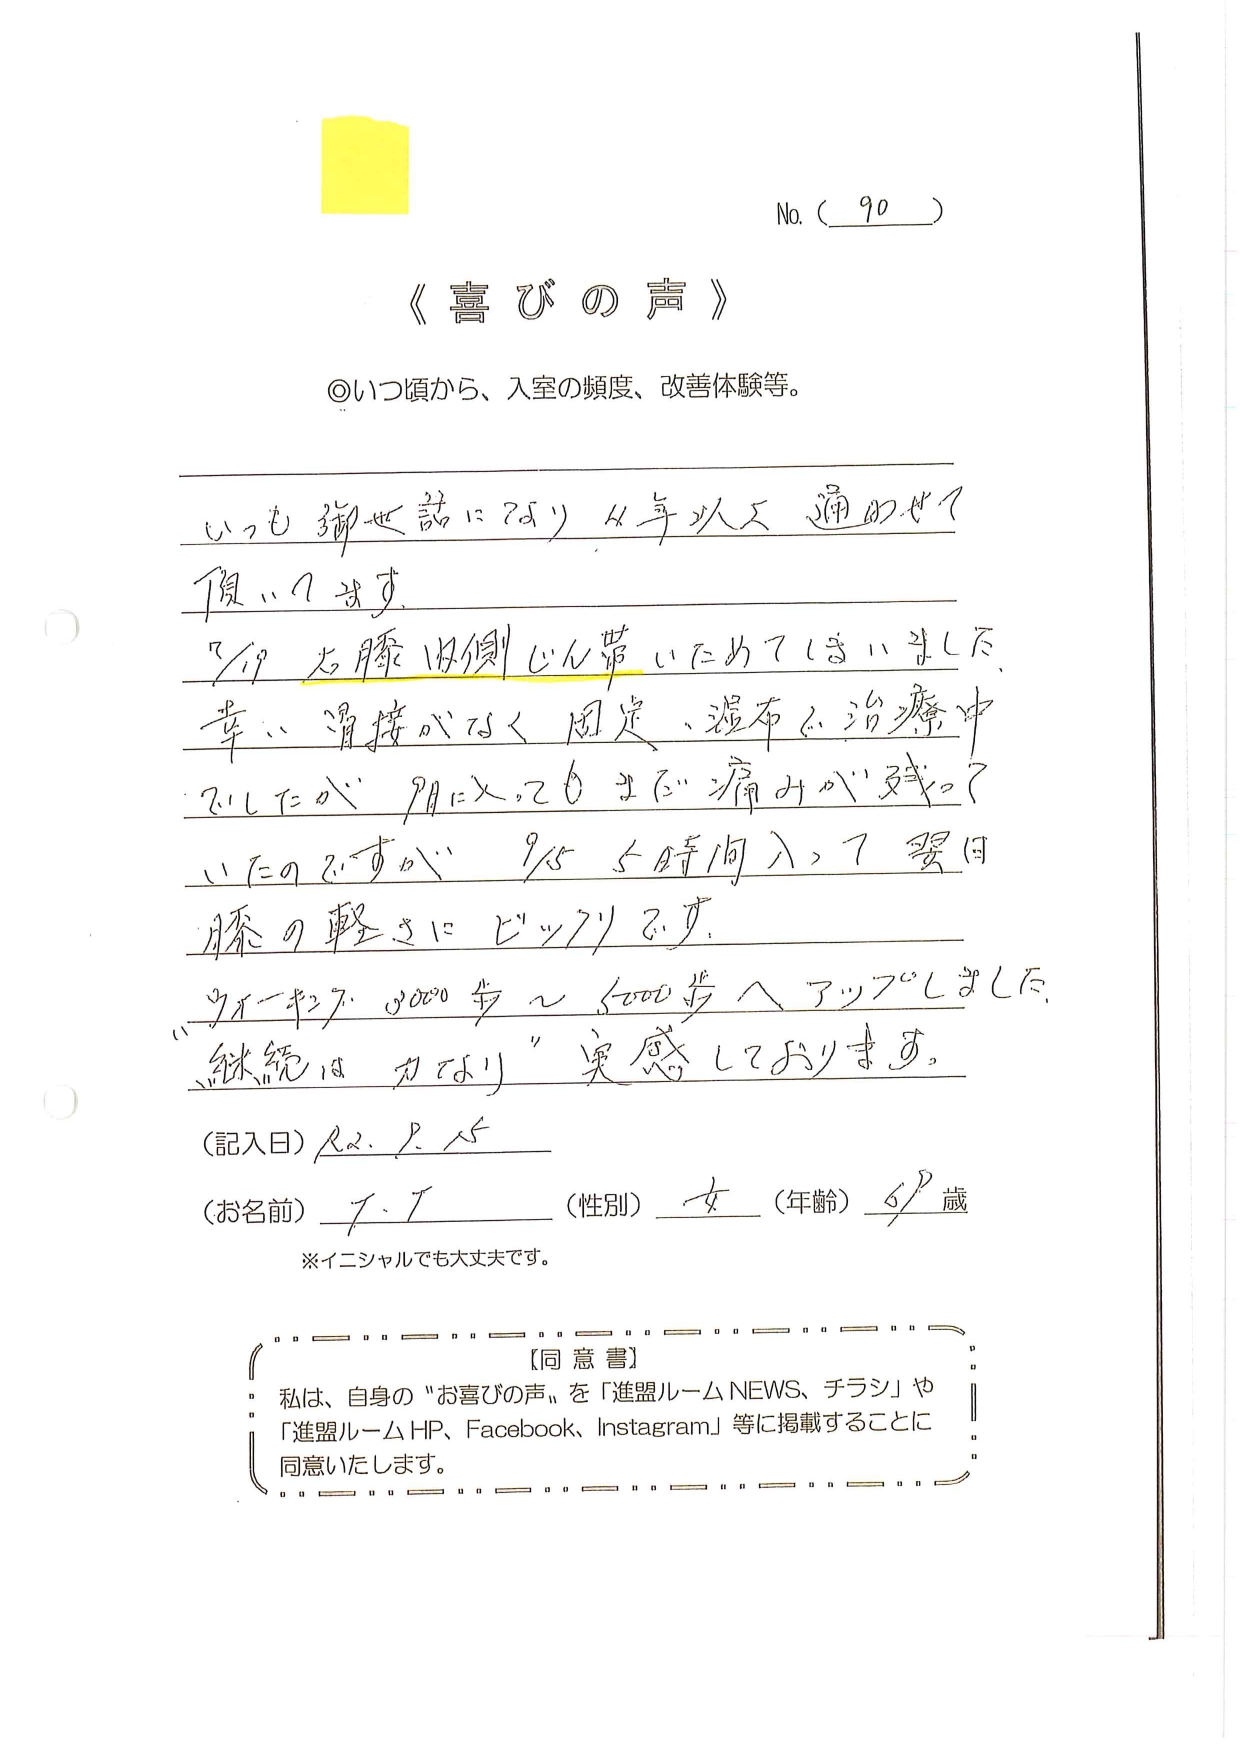 No.( 90 )
《喜びの声》
◎いつ頃から、入室の頻度、改善体験等。
いつも御世話になり 4年以上 通わせて
頂いてます.
7/19 右膝内側じん帯いためてしまいました.
幸い 骨接がなく 固定、湿布で治療中
でしたが 9月に入っても まだ痛みが残って
いたのですが 9/15 5時間入って 翌日
膝の軽さに ビックリです.
ウォーキング 3000歩～5000歩へアップしました.
"継続は力なり" 実感しております。
(記入日) R2. 9. 15
(お名前) T.T (性別) 女 (年齢) 69 歳
※イニシャルでも大丈夫です。
【同意書】
私は、自身の〝お喜びの声〟を「進盟ルームNEWS、チラシ」や
「進盟ルームHP、Facebook、Instagram」等に掲載することに
同意いたします。